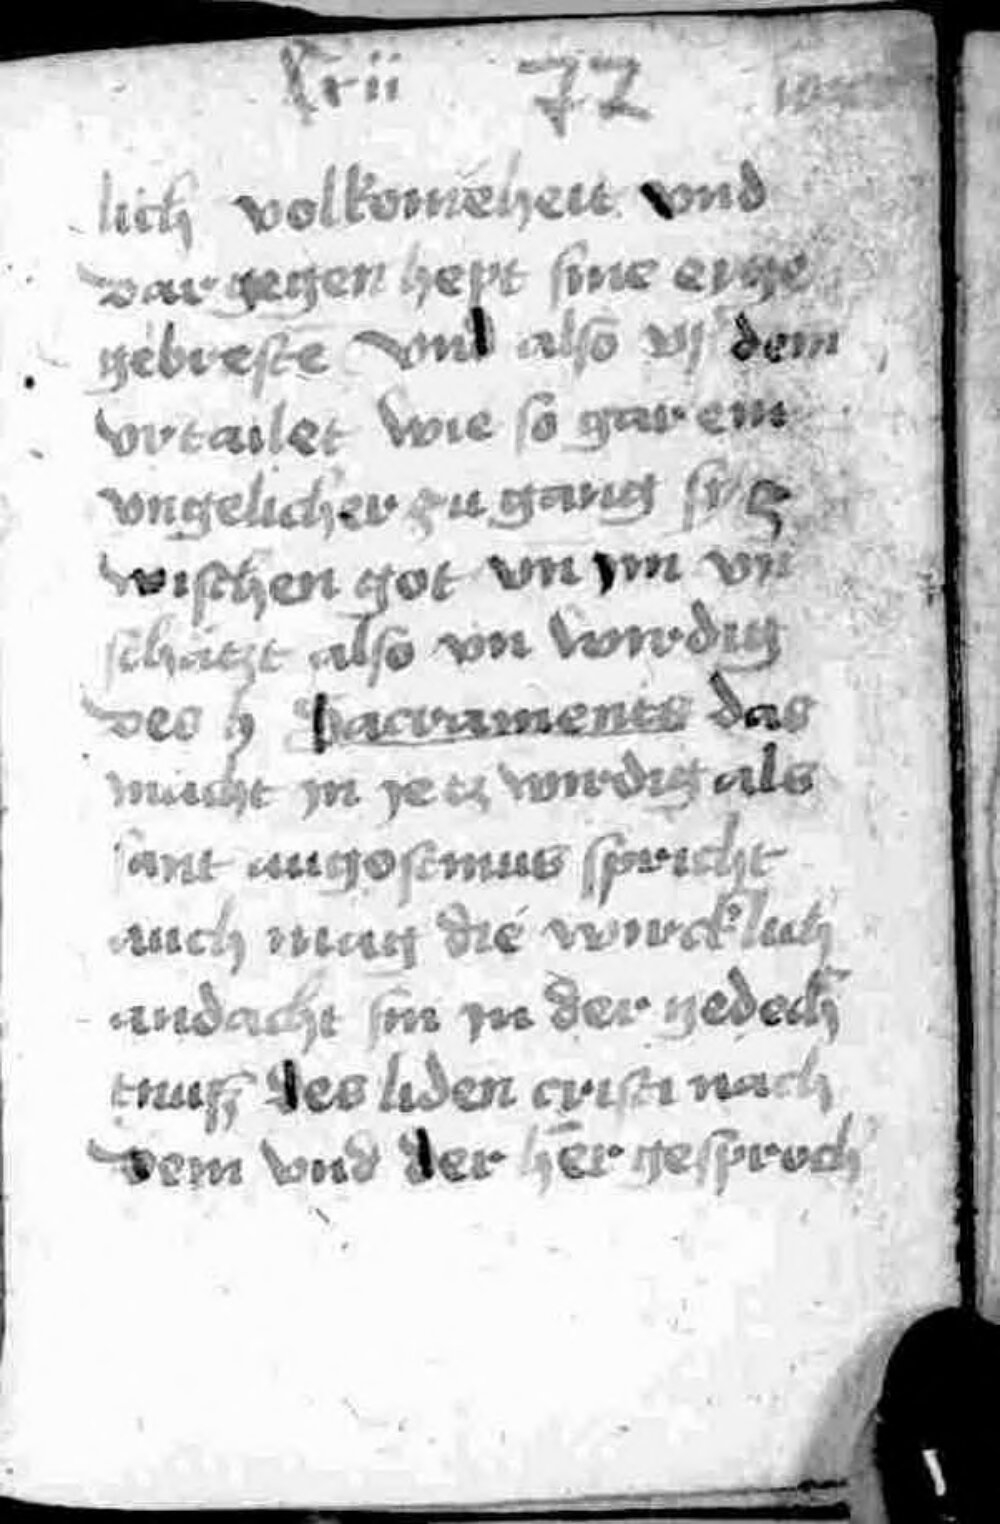 lxxii 72
lich volkomēheit vnd
dar gegen hept sine eigne
gebreste vnd also vß dem
vrtailet wie so gar ein
vngelicher zu gang sy z
wischen got vn ym vn
schätzt also vn wirdig
des h Sacraments das
macht yn yetz wirdig als
sant augostinus spricht
auch mag die wircklich
andacht sin yn der gedech
tnuß des liden cristi nach
dem vnd der her gesproch